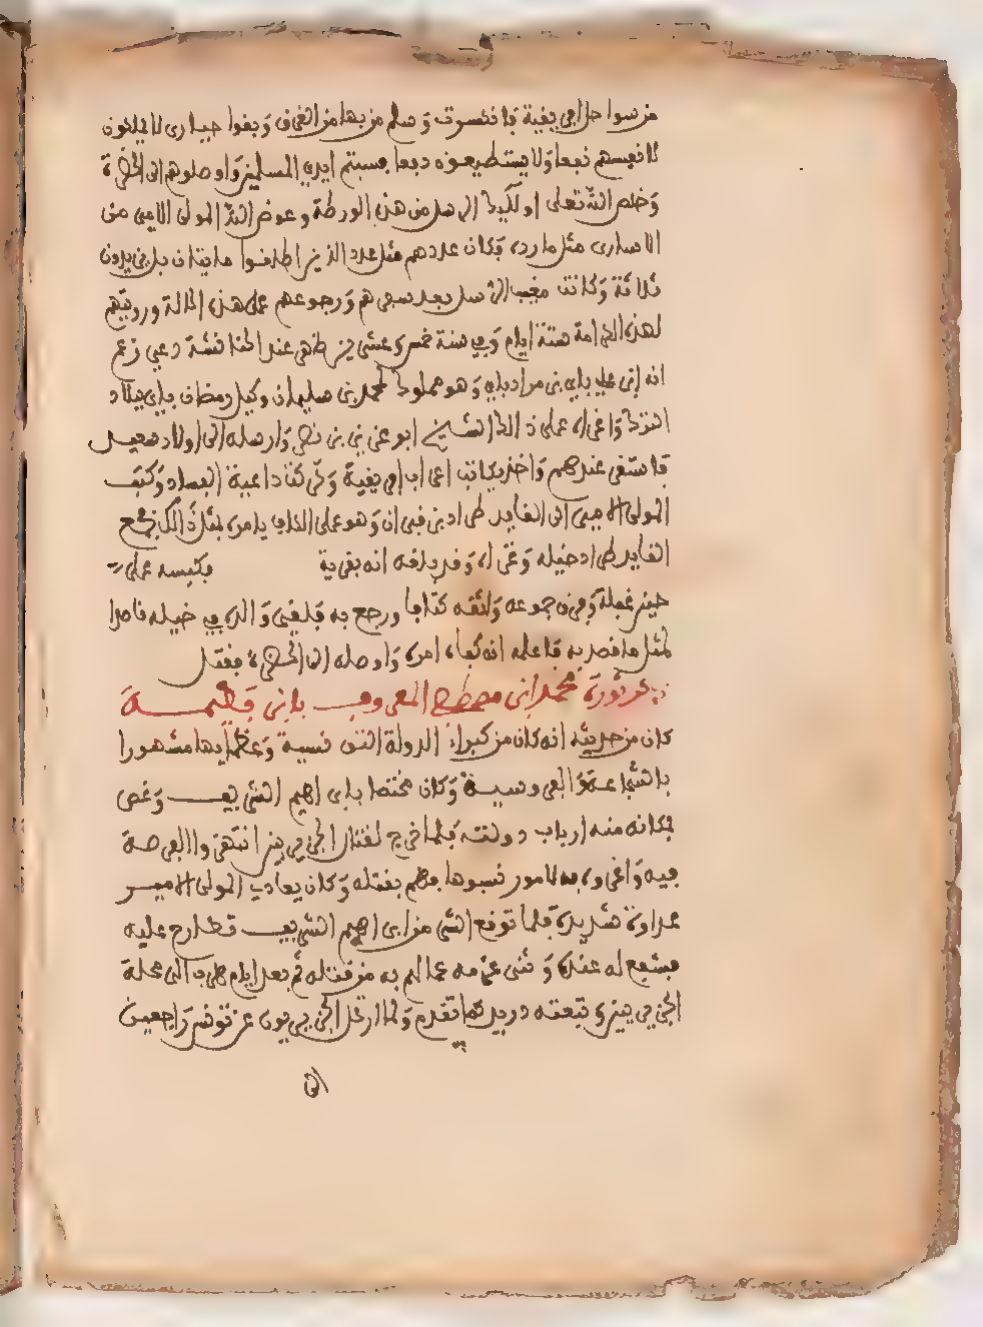 من سواحل افريقية فانكسرت وسلم من بها من الغرق وبقوا حيارى لا يملكون
لانفسهم نفعا ولا يستطيعون دفعا فسبتهم ايدي المسلمين واوصلوهم الى الحضرة
وخلص الله تعالى اولئك الرسل من هذه الورطة وعوض الله المولى الامير من
الاسارى مثل ما رده وكان عددهم مثل عدد الذين اطلقوا مايتان بل يزيدون
ثلاثة وكانت مغيب الرسل بعد سفرهم ورجوعهم على هذه الحالة ورويتهم
لهذه الكرامة ستة ايام وفي سنة خمس وعشرين ظهر عند الحنانشة دعي زعم
انه ابن علي باي بن مراد باي وهو مملوك لمحمد بن سليمان وكيل رمضان باي ببلاد
الترك واغراه على ذالك الشيخ ابو عزيز بن نصر وارسله الى اولاد سعيد
فاستقر عندهم واخذ يكاتب اعراب افريقية وكثرت داعية الفساد وكتب
المولى الامير الى القايد طراد بن فيران وهو على الكاف يامره بمثل ذالك فجمع
القايد طراد خيله وغزاه وقد بلغه انه بقرية فكبسه على
حين غفلة وفرق جموعه واثقه كتافا ورجع به فلقي والده في خيله قاصدا
لمثل ما قصد به فاعلمه انه كفاه امره واوصله الى الحضرة فقتل
ذكر ثورة محمد ابن مصطفى المعروف بابن فطيمة
كان من حديثه انه كان من كبراء الدولة التونسية وعظمايها مشهورا
بالشجاعة والفروسية وكان مختصا بابراهيم الشريف وغص
بمكانه منه ارباب دولته فلما خرج لقتال الجزيريين انتهزوا الفرصة
فيه واغروه به لامور نسبوها فهم بقتله وكان يعادي المولى الامير
عداوة شديدة فلما توقع الشر من ابراهيم الشريف تطارح عليه
فشفع له عنده وثنى عزمه عما لم به من قتله ثم بعد ايام هرب الى محلة
الجزيريين وتبعته دريد كما تقدم ولما ارتحل الجزيريون عن تونس راجعين